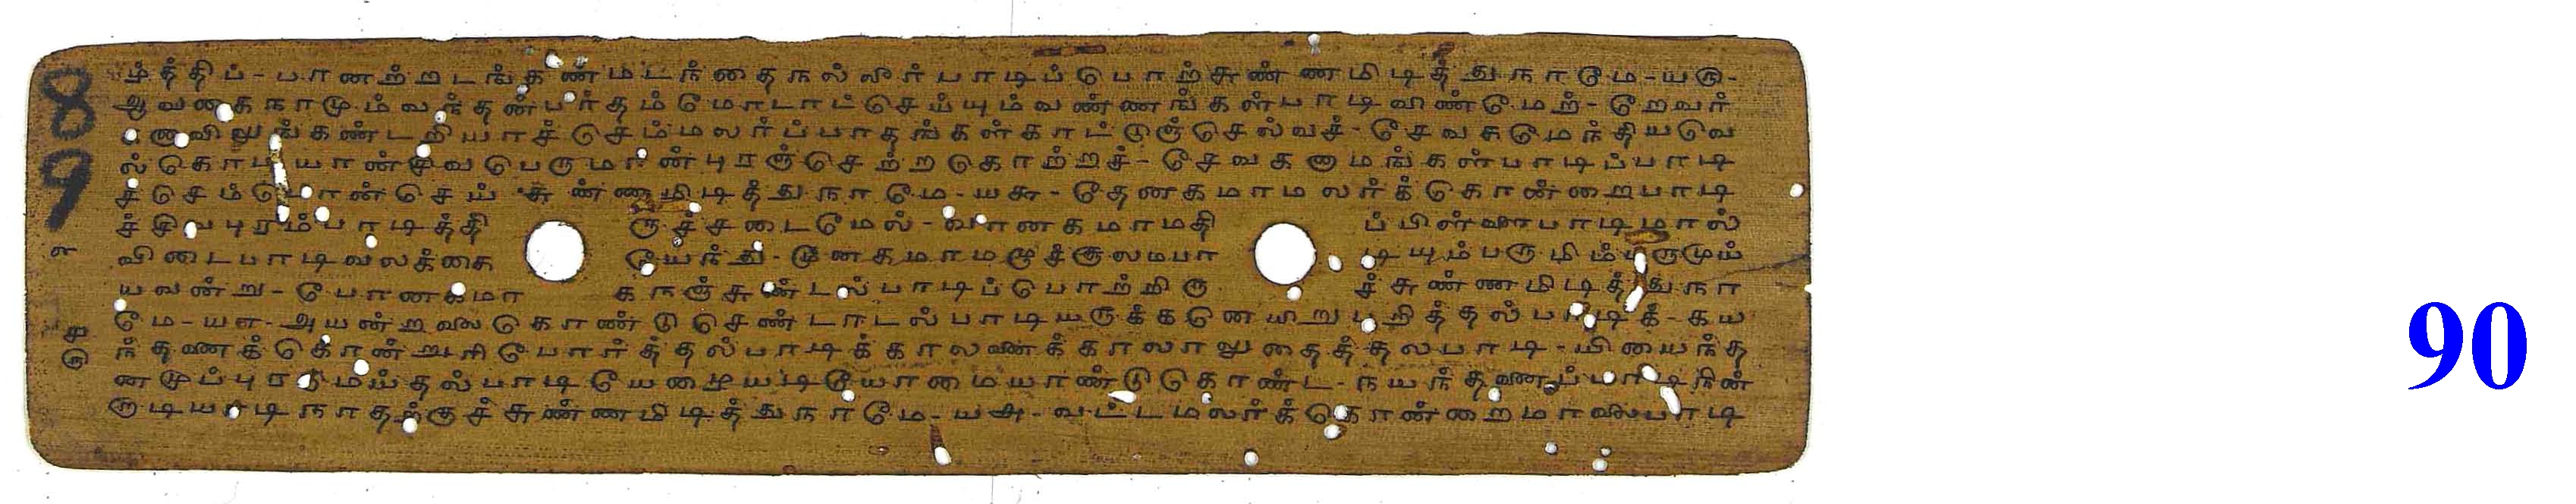 ழ்த்திப் - பானற்றடங்கண்மடந்தைநல்லீர்பாடிப்பொற்சுண்ணமிடித்துநாமே - யரு -
ஆவகைநாமும்வந்தன்பர்தம்மோடாட்செய்யும்வண்ணங்கள்பாடிவிண்மேற் - றேவர்
கனாவிலுங்கண்டறியாச்செம்மலர்ப்பாதங்கள்காட்டுஞ்செல்வச் - சேவகமேந்தியவெ
ல்கொடியான்சிவபெருமான்புரஞ்செற்றகொற்றச் - சேவகனாமங்கள்பாடிப்பாடி
ச்செம்பொன்செய் சுண்ணமிடித்துநாமே - யசு - தேனகமாமலர்க்கொன்றைபாடி
ச்சிவபுரம்பாடித்தி ருச்சடைமேல் - வானகமாமதி ப்பிள்ளைபாடிமால்
விடைபாடிவலக்கை யேந்து - மூனகமாமழுச்சூலமபா டியும்பருமிம்பருமும்
யவன்று - போனகமா கநஞ்சுண்டல்பாடிப்பொற்றிரு ச்சுண்ணமிடித்துநா
மே - யஎ - அயன்றலைகொண்டுசெண்டாடல்பாடியருக்கனெயிறுபறித்தல்பாடிக் - கய
ந்தனைக்கொன்றுரிபோர்த்தல்பாடிக்காலனைக்காலாலுதைத்தலபாடி - யியைந்த
னமுப்புரமெய்தல்பாடியேழையடியோமையாண்டுகொண்ட - நயந்தனைப்பாடிநின்
றாடியாடிநாதற்குச்சுண்ணமிடித்துநாமே - யஅ - வட்டமலர்க்கொன்றைமாலைபாடி
89
எ
சு
ரு
90